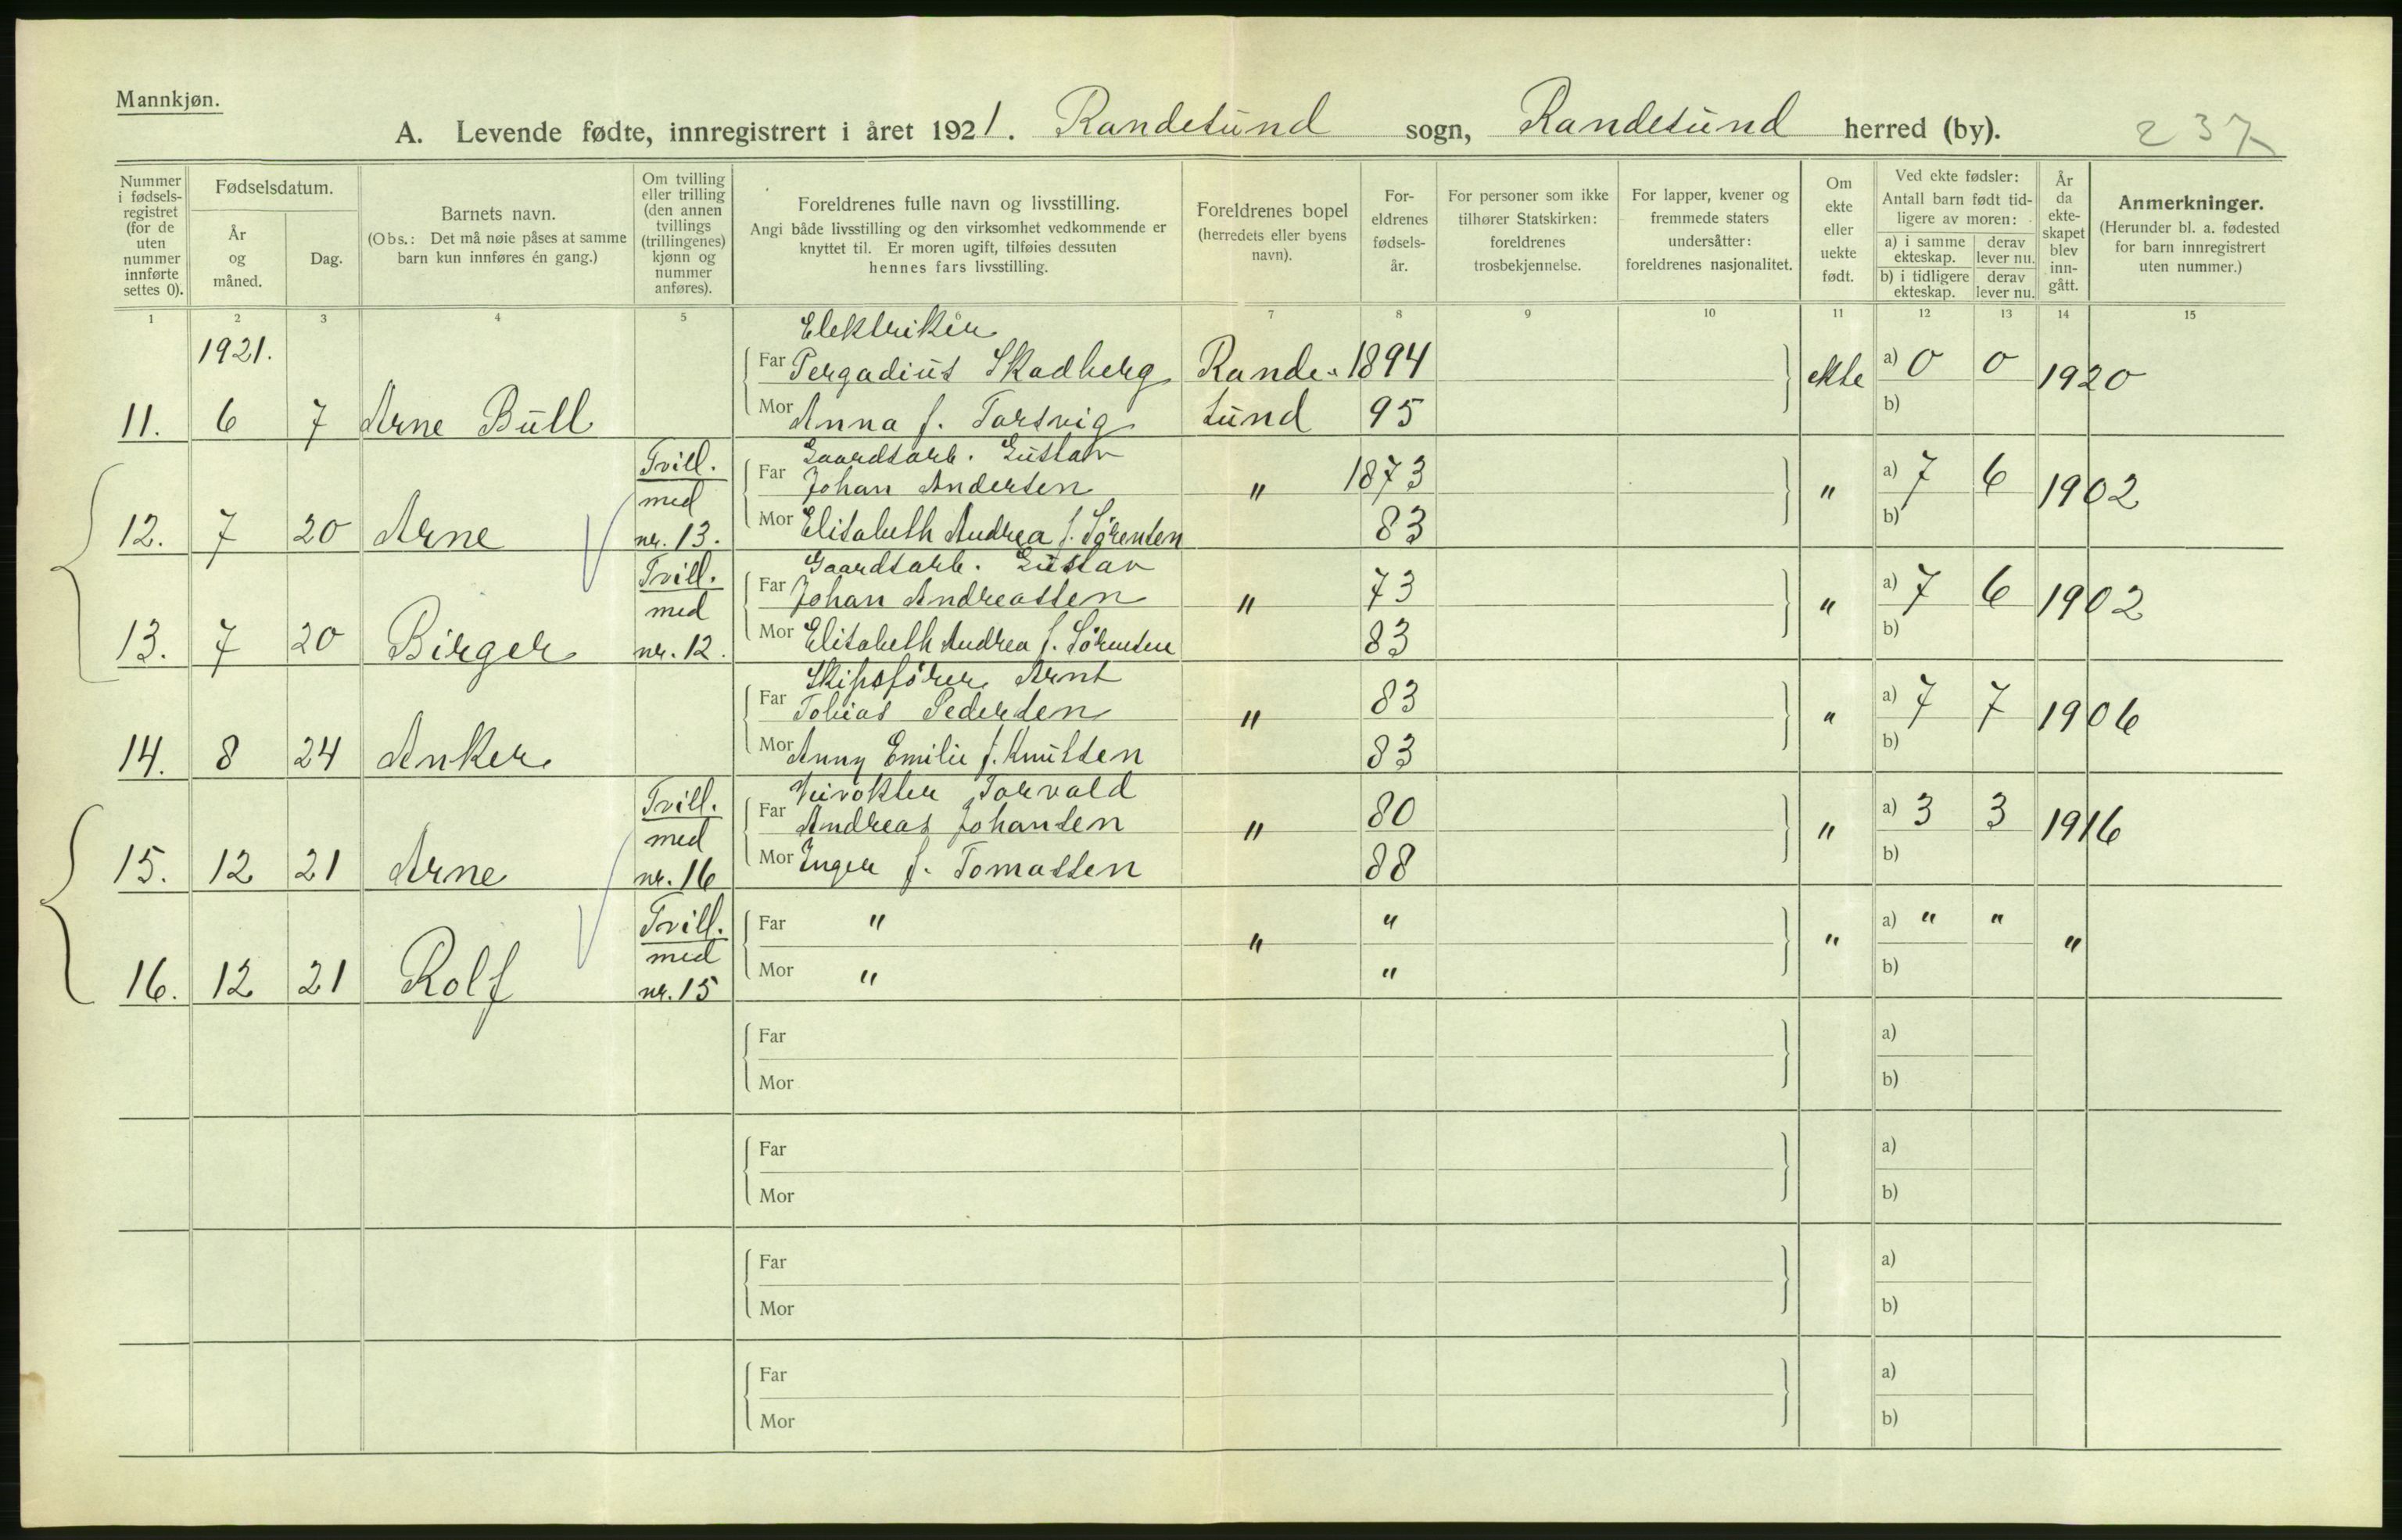 Mannkjøn.
A. Levende fødte, innregistrert i året 1921. Randesund sogn, Randesund herred (by). 237
Nummer i fødselsregistret (for de uten nummer innførte settes 0).
Fødselsdatum.
År og måned.
Dag.
Barnets navn.
(Obs.: Det må nøie påses at samme barn kun innføres én gang.)
Om tvilling eller trilling (den annen tvillings (trillingenes) kjønn og nummer anføres).
Foreldrenes fulle navn og livsstilling.
Angi både livsstilling og den virksomhet vedkommende er knyttet til. Er moren ugift, tilføies dessuten hennes fars livsstilling.
Foreldrenes bopel (herredets eller byens navn).
Foreldrenes fødselsår.
For personer som ikke tilhører Statskirken: foreldrenes trosbekjennelse.
For lapper, kvener og fremmede staters undersåtter: foreldrenes nasjonalitet.
Om ekte eller uekte født.
Ved ekte fødsler:
Antall barn født tidligere av moren:
a) i samme ekteskap. derav lever nu.
b) i tidligere ekteskap. derav lever nu.
År da ekteskapet blev inngått.
Anmerkninger.
(Herunder bl. a. fødested for barn innregistrert uten nummer.)
1 2 3 4 5 7 8 9 10 11 12 13 14 15
1921.
Elektriker
Far Pergadius Skadberg Rande- 1894 ekte a) 0 0 1920
11. 6 7 Arne Bull Mor Anna f. Torsvig sund 95 b)
Tvill. Gaardsarb. Gustav
med Far Johan Andersen " 1873 " a) 7 6 1902
12. 7 20 Arne nr. 13. Mor Elisabeth Andrea f. Sørensen 83 b)
Tvill. Gaardsarb. Gustav
med Far Johan Andreassen " 73 " a) 7 6 1902
13. 7 20 Birger nr. 12. Mor Elisabeth Andrea f. Sørensen 83 b)
Skipsfører Arnt
Far Tobias Pedersen " 83 " a) 7 7 1906
14. 8 24 Anker Mor Anny Emilie f. Knutsen 83 b)
Tvill. Veivokter Torvald
med Far Andreas Johansen " 80 " a) 3 3 1916
15. 12 21 Arne nr. 16 Mor Inger f. Tomassen 88 b)
Tvill. Far " " " " a) " " "
med
16. 12 21 Rolf nr. 15 Mor " " b)
Far a)
Mor b)
Far a)
Mor b)
Far a)
Mor b)
Far a)
Mor b)